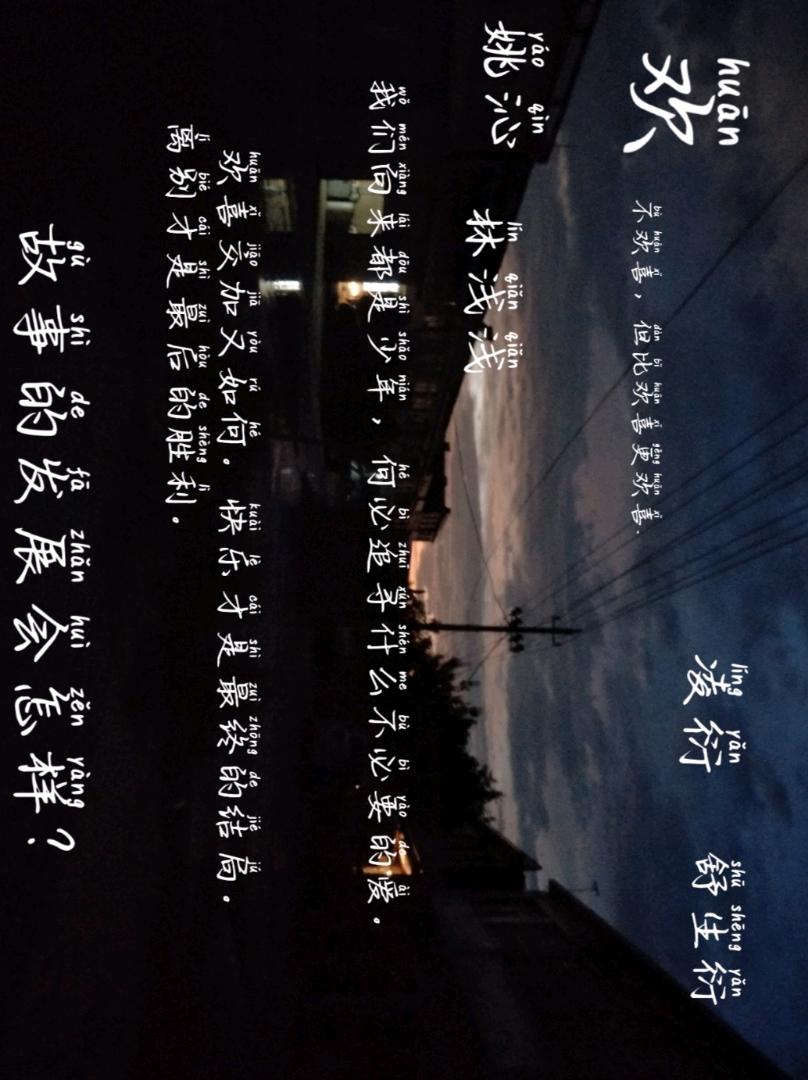 huān
欢
líng yǎn
凌衍
shū shēng yǎn
舒生衍
bù huān xǐ dàn bǐ huān xǐ gèng huān xǐ
不欢喜，但比欢喜更欢喜.
yáo qìn
姚沁
lín qiǎn qiǎn
林浅浅
wǒ mén xiàng lái dōu shì shǎo nián hé bì zhuī xún shén me bù bì yào de ài
我们向来都是少年，何必追寻什么不必要的爱。
huān xǐ jiāo jiā yòu rú hé kuài lè cái shì zuì zhōng de jié jú
欢喜交加又如何。快乐才是最终的结局。
lí bié cái shì zuì hòu de shèng lì
离别才是最后的胜利。
gù shì de fā zhǎn huì zěn yàng
故事的发展会怎样？